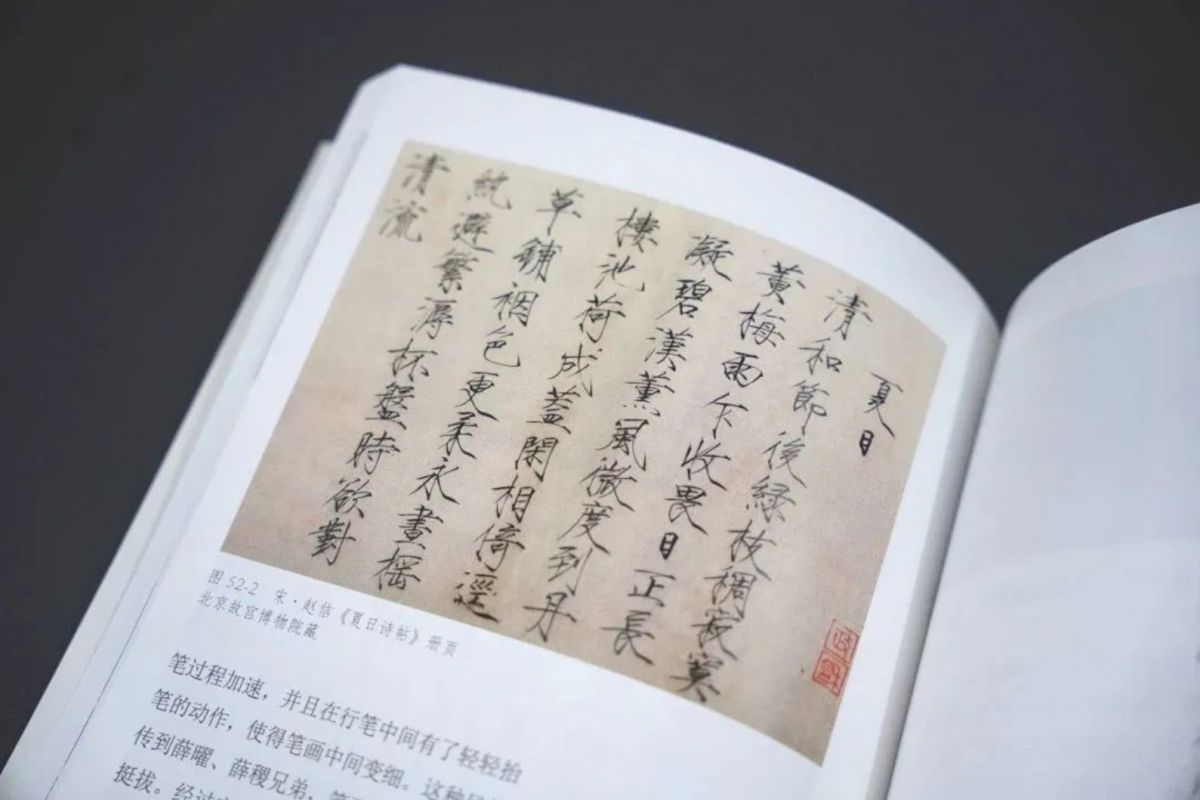 夏日
清和節後緑枝稠寂寞
黄梅雨乍收畏日正長
凝碧漢薰風微度到丹
樓池荷成蓋閑相倚逕
草鋪裀色更柔永晝摇
紈避繁溽杯盤時欲對
清流
政龢
图 52-2 宋·赵佶《夏日诗帖》册页
北京故宫博物院藏
笔过程加速，并且在行笔中间有了轻轻抬
笔的动作，使得笔画中间变细。这种
传到薛曜、薛稷兄弟，
挺拔。经过